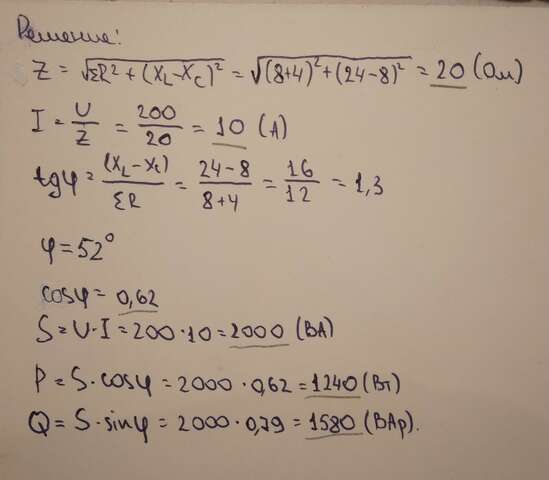 Решение:
Z = √ΣR² + (X_L - X_C)² = √(8+4)² + (24-8)² = 20 (Ом)
I = U/Z = 200/20 = 10 (A)
tgφ = (X_L - X_C)/ΣR = 24-8/8+4 = 16/12 = 1,3
φ = 52°
cosφ = 0,62
S = U·I = 200·10 = 2000 (ВА)
P = S·cosφ = 2000·0,62 = 1240 (Вт)
Q = S·sinφ = 2000·0,79 = 1580 (ВАр).